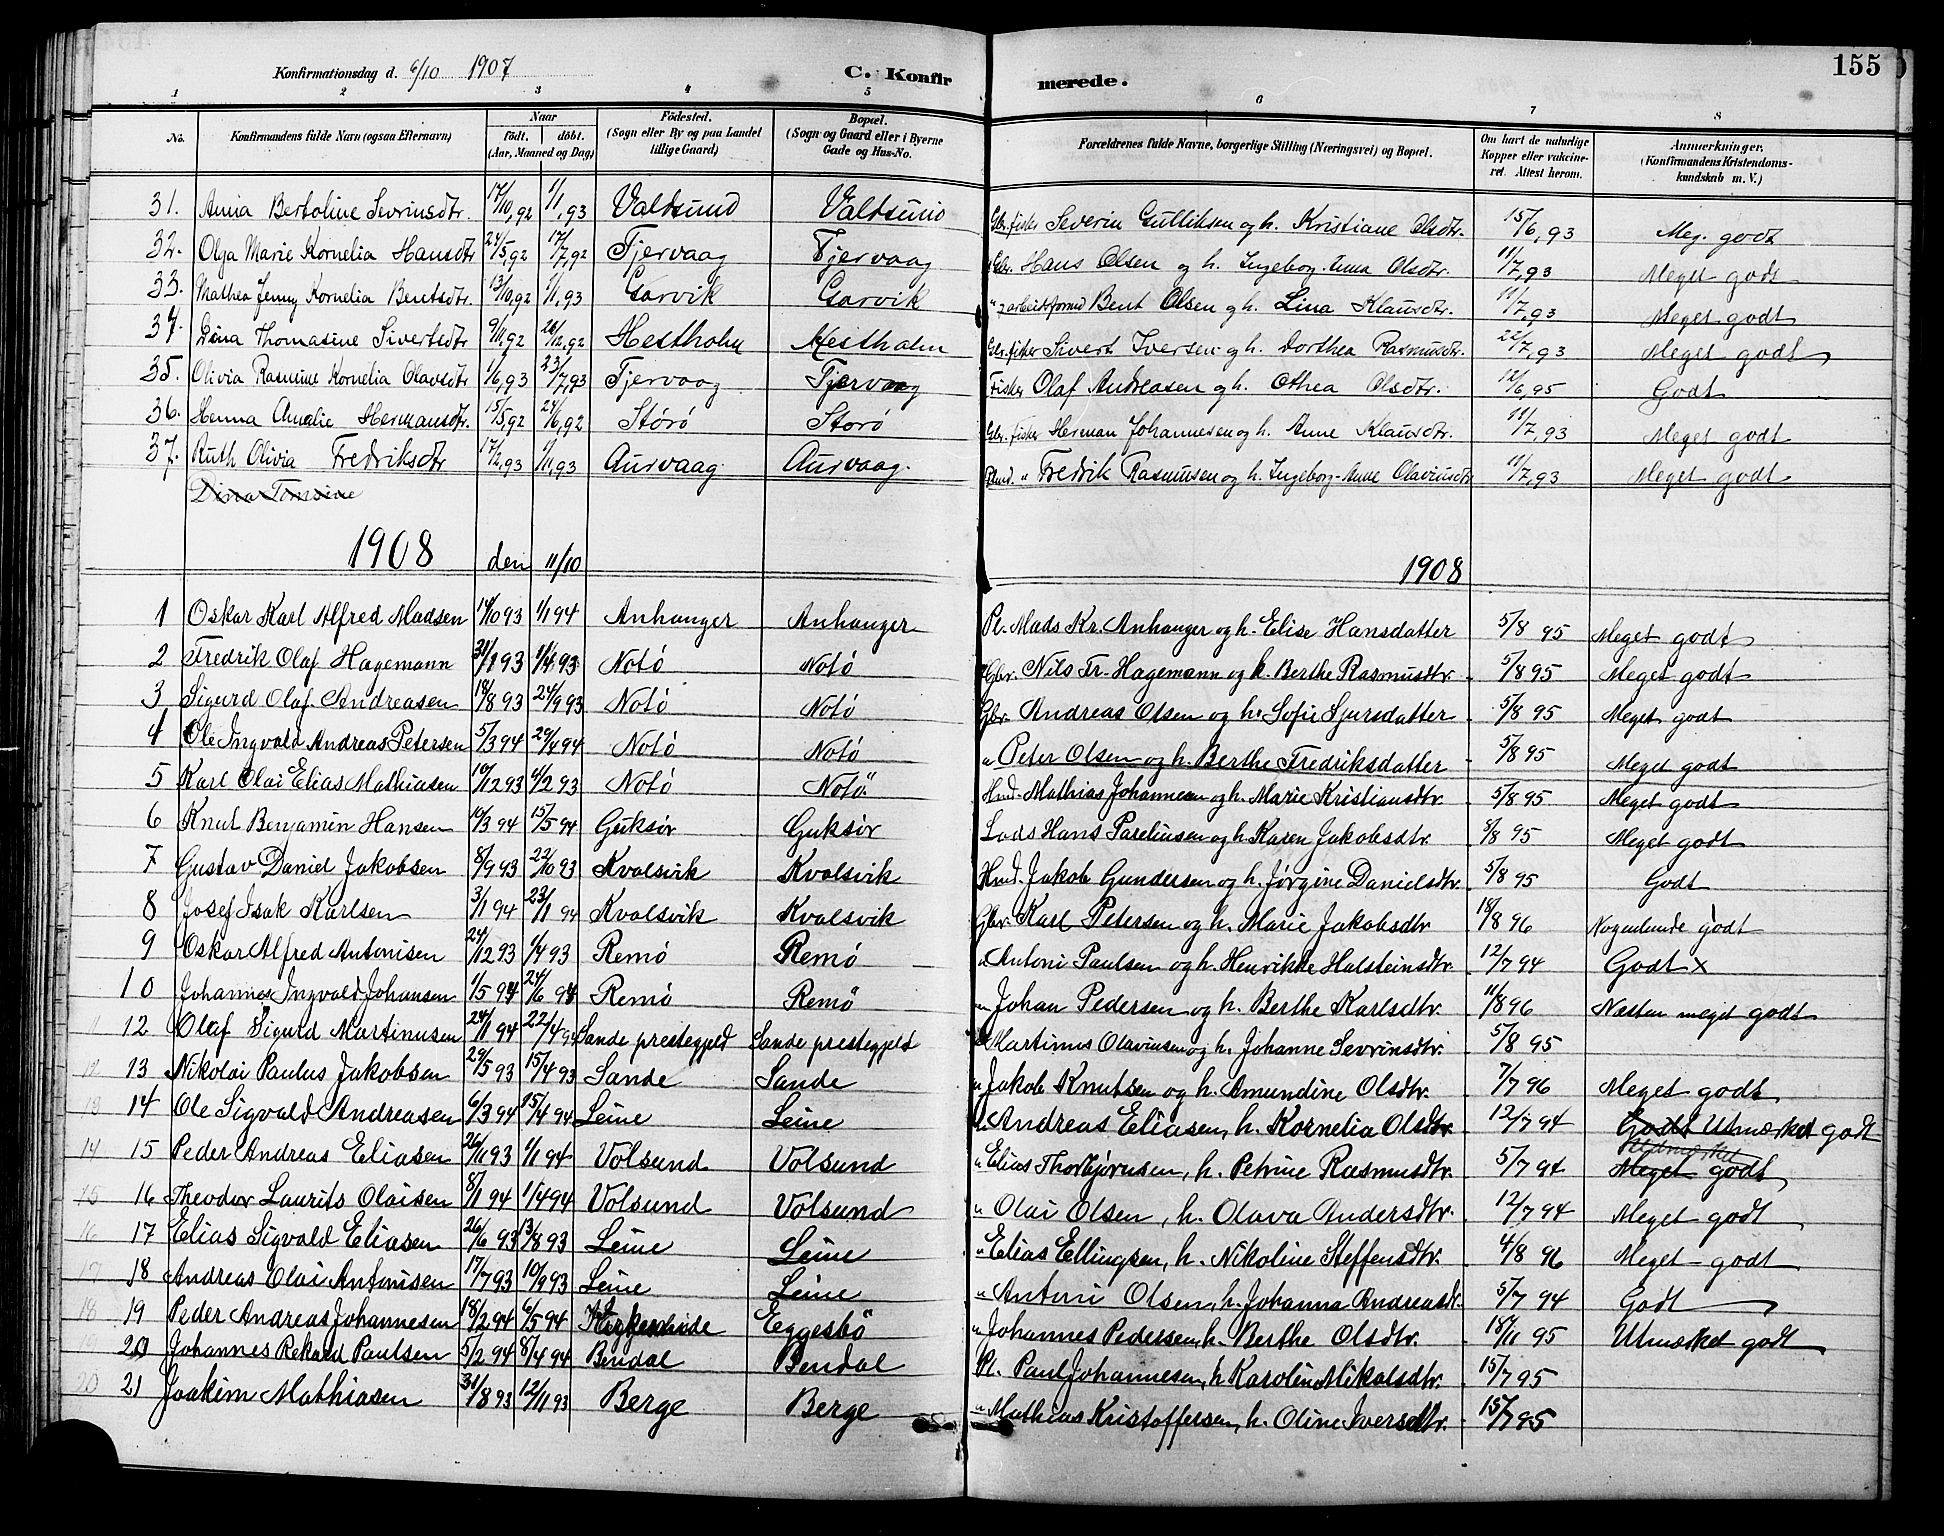 155
Konfirmationsdag d. 6/10 1907 C. Konfirmerede.
1 2 3 4 5 6 7 8
No. Konfirmandens fulde Navn (ogsaa Efternavn) Naar født. døbt. (Aar, Maaned og Dag) Fødested. (Sogn eller By og paa Landet tillige Gaard) Bopæl. (Sogn og Gaard eller i Byerne Gade og Hus-No. Forældrenes fulde Navne, borgerlige Stilling (Næringsvei) og Bopæl. Om havt de naturlige Kopper eller vakcineret. Attest herom. Anmærkninger. (Konfirmandens Kristendomskundskab m. V.)
31. Anna Bertoline Sevrinsdtr. 17/10,92 1/1,93 Valdsund Valdsund Gbr. fisker Severin Gulliksen og h. Kristiane Olsdtr. 15/6,93 Meg. godt
32. Olga Marie Kornelia Hansdtr 24/5,92 17/7,92 Tjervaag Tjervaag Gbr. Hans Olsen og h. Ingeborg Anna Olsdtr. 11/7,93 Meget godt
33. Mathea Jenny Kornelia Bentsdtr. 13/10,92 1/1,93 Gorvik Gorvik Bent Olsen og h. Lina Klausdtr. 11/7,93 Meget godt
34. Dina Thomasine Sivertsdtr 9/11,92 26/12,92 Hestholm Hestholm Gbr. fisker Sivert Iversen og h. Dorthea Rasmusdtr. 22/7,93 Meget godt
35. Olivia Rasmine Kornelia Olavsdtr 1/6,93 23/7,93 Tjervaag Tjervaag Fisker Olaf Andreasen og h. Othea Olsdtr. 12/6,95 Godt
36. Henna Amalie Hermansdtr. 15/5,92 24/6,92 Størø Storø Gbr. fisker Herman Johannesen og h. Anne Klausdtr. 11/7,93 Meget godt
37. Ruth Olivia Fredriksdtr 17/2,93 1/11,93 Aurvaag Aurvaag. Fredrik Rasmussen og h. Ingeborg-Anne Olaviusdtr 11/7,93 Meget godt
1908 den 11/10 1908
1 Oskar Karl Alfred Madsen 14/10 93 1/1 94 Anhanger Anhanger Pl. Mads Kr. Anhanger og h. Elise Hansdatter 5/8 95 Meget godt
2 Fredrik Olaf Hagemann 31/1 93 1/4 93 Notø Notø Gbr. Nils Fr. Hagemann og h. Berthe Rasmusdtr. 5/8 95 Meget godt
3 Sigurd Olaf Andreasen 18/8 93 24/9 93 Notø Notø Gbr. Andreas Olsen og h. Sofie Sjursdatter 5/8 95 Meget godt
4 Ole Ingvald Andreas Petersen 5/3 94 29/4 94 Notø Notø " Peter Olsen og h. Berthe Fredriksdatter 5/8 95 Meget godt
5 Karl Olai Elias Mathiasen Notø Notø Hmd. Mathias Johannesen og h. Marie Kristiansdtr. 5/8 95 Meget godt
6 Knut Benjamin Hansen 10/3 94 15/5 94 Guksør Guksør Lods Hans Parelinsen og h. Karen Jakobsdtr. 5/8 95 Meget godt
7 Gustav Daniel Jakobsen 8/9 93 22/10 93 Kvalsvik Kvalsvik Hmd. Jakob Gundersen og h. Jørgine Danielsdtr. 5/8 95 Godt
8 Josef Isak Karlsen 3/1 94 23/1 94 Kvalsvik Kvalsvik Gbr. Karl Petersen og h. Marie Jakobsdtr 18/8 96 Nogenlunde godt
9 Oskar Alfred Antonisen 24/12 93 1/4 93 Remø Remø " Antoni Paulsen og h. Henrikke Halsteinsdtr. 12/7 94 Godt x
10 Johannes Ingvald Johansen 1/5 94 24/6 94 Remø Remø " Johan Pedersen og h. Berthe Karlsdtr. 11/8 96 Næsten meget godt
11 12 Olaf Sigurd Martinusen 24/1 94 22/4 94 Sande prestegjeld Sande prestegjeld " Martinus Olaviusen og h. Johanne Sevrinsdtr. 5/8 95
12 13 Nikolai Paulus Jakobsen 29/5 93 15/4 93 Sande Sande " Jakob Knutsen og h. Amundine Olsdtr. 7/7 96 Meget godt
13 14 Ole Sigvald Andreasen 6/3 94 15/4 94 Leine Leine " Andreas Eliasen, h. Kornelia Olsdtr 12/7 94 Godt Utmærket godt
14 15 Peder Andreas Eliasen 26/11 93 1/1 94 Volsund Volsund " Elias Thorbjørnsen, h. Petrine Rasmusdtr. 5/7 94 Utmærket Meget godt
15 16 Theodor Laurits Olaisen 8/1 94 1/4 94 Volsund Volsund " Olai Olsen, h. Olava Andersdtr. 12/7 94 Meget godt
16 17 Elias Sigvald Eliasen 26/6 93 13/8 93 Leine Leine " Elias Ellingsen, h. Nikoline Steffensdtr. 4/8 96 Meget godt
17 18 Andreas Olai Antonisen 17/7 93 10/9 93 Leine Leine " Antoni Olsen, h. Johanna Andreasdt. 5/7 94 Godt
18 19 Peder Andreas Johannesen 18/2 94 6/5 94 Eggesbø " Johannes Pedersen, h. Berthe Olsdtr. 18/11 95 Utmærket godt
19 20 Johannes Rekard Paulsen 5/2 94 8/4 94 Bendal Bendal Pl. Paul Johannesen, h Karolin Nikolsdtr. 15/7 95
20 21 Joakim Mathiasen 31/8 93 12/11 93 Berge Berge " Mathias Kristoffersen, h. Oline Iversdtr. 15/7 95